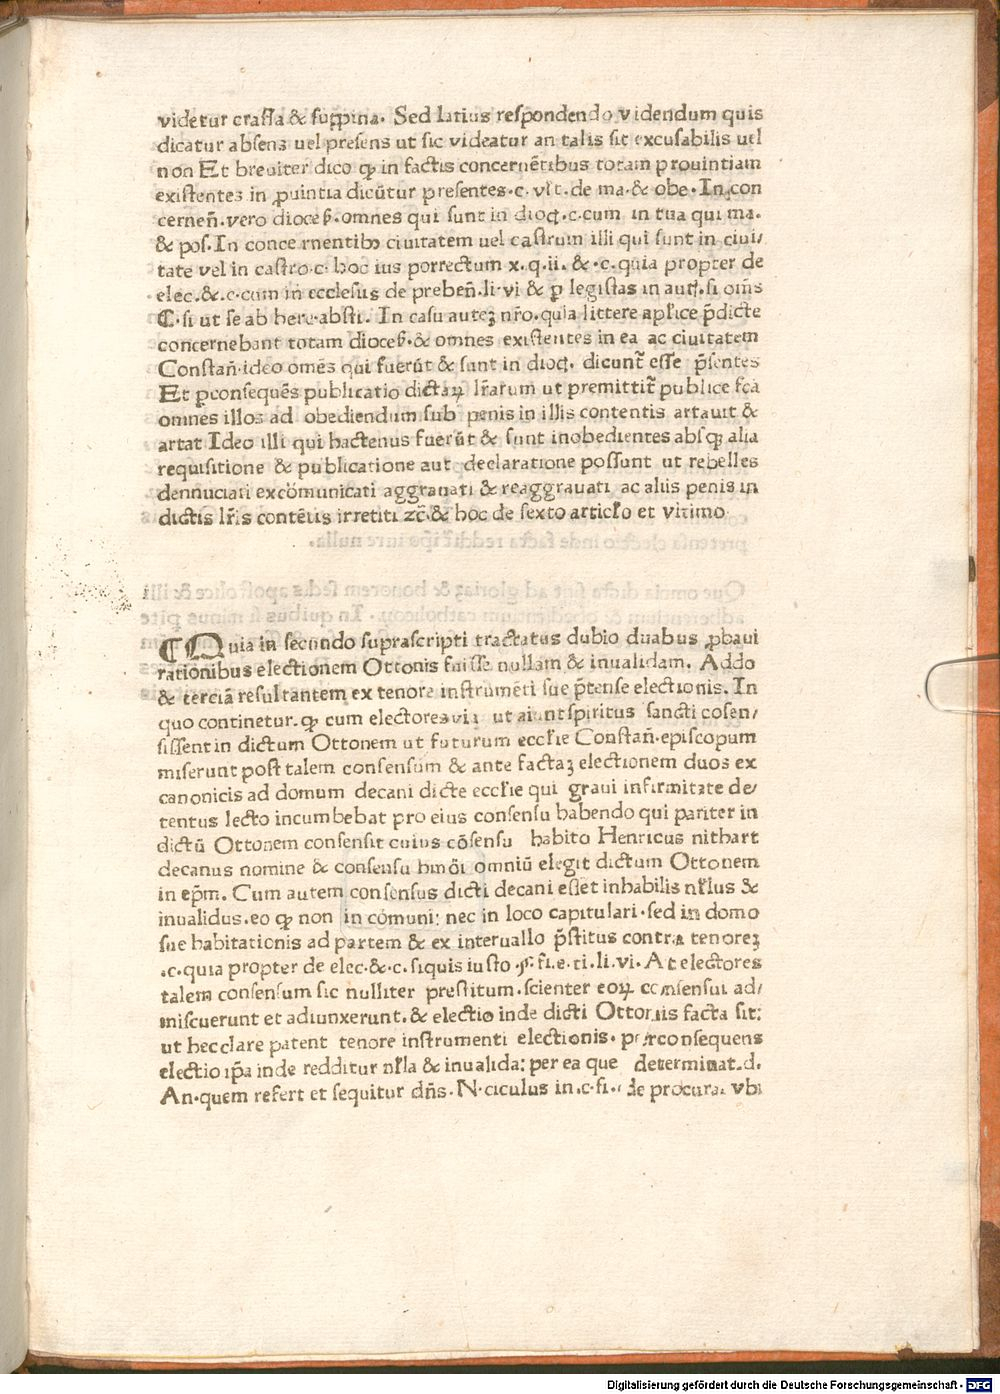 videtur crassa & supina. Sed latius respondendo videndum quis
dicatur absens uel presens ut sic videatur an talis sit excusabilis uel
non Et breuiter dico ꝙ in factis concernẽtibus totam prouintiam
existentes in ꝓuintia dicũtur presentes.c. vlt. de ma.& obe.In con
cerneñ.vero dioceẞ.omnes qui sunt in dioc̨.c.cum in tua qui ma.
& pos.In conce rnentibꝰ ciuitatem uel castrum illi qui sunt in ciui/
tate vel in castro.c. hoc ius porrectum x.q.ii. & .c. quia propter de
elec.&.c.cum in ecclesiis de prebeñ.li.vi & ꝑ legistas in
C.si ut se ab here.absti. In casu auteȝ nr̃o.quia littere apl̃ice p̃dicte
concernebant totam dioceẞ.& omnes existentes in ea ac ciuitatem
Constañ.ideo omẽs qui fuerũt & sunt in dioc̨. dicunt̃ esse p̃sentes
Et ꝑconsequẽs publicatio dictaꝝ lr̃arum ut premittit̃ publice fc̃a
omnes illos ad obediendum sub penis in illis contentis artauit &
artat Ideo illi qui hactenus fuerũt & sunt inobedientes absqꝫ alia
requisitione & publicatione aut declaratione possunt ut rebelles
dennuciari excõmunicati aggrauati & reaggrauati ac aliis penis in
dictis lr̃is contẽtis irretiti zc̃.& hoc de sexto articl̃o et vltimo

¶Quia in secundo suprascripti tractatus dubio duabus ꝓbaui
rationibus electionem Ottonis fuisse nullam & inualidam. Addo
& terciã resultantem ex tenore instrumẽti sue p̃tense electionis. In
quo continetur.ꝙ cum electores via ut aiunt spiritus sancti cosen/
sissent in dictum Ottonem ut futurum eccl̃ie Constañ.episcopum
miserunt post talem consensum & ante factaȝ electionem duos ex
canonicis ad domum decani dicte eccl̃ie qui graui infirmitate de/
tentus lecto incumbebat pro eius consensu habendo qui pariter in
dictũ Ottonem consensit cuius cõsensu habito Henricus nithart
decanus nomine & consensu hmõi omniũ elegit dictum Ottonem
in ep̃m. Cum autem consensus dicti decani esset inhabilis nl̃lus &
inualidus.eo ꝙ non in cõmuni: nec in loco capitulari.sed in domo
sue habitationis ad partem & ex interuallo p̃stitus contra tenoreȝ
.c.quia propter de elec.&.c.siquis iusto e.ti.li.vi. At electores
talem consensum sic nulliter prestitum.scienter eoꝝ consensui ad/
miscuerunt et adiunxerunt.& electio inde dicti Ottonis facta sit:
ut hec clare patent tenore instrumenti electionis. perconsequens
electio ip̃a inde redditur nl̃la & inualida: per ea que determinat.d.
An.quem refert et sequitur dñs.N.ciculus in.c.fi. de procura. vbi